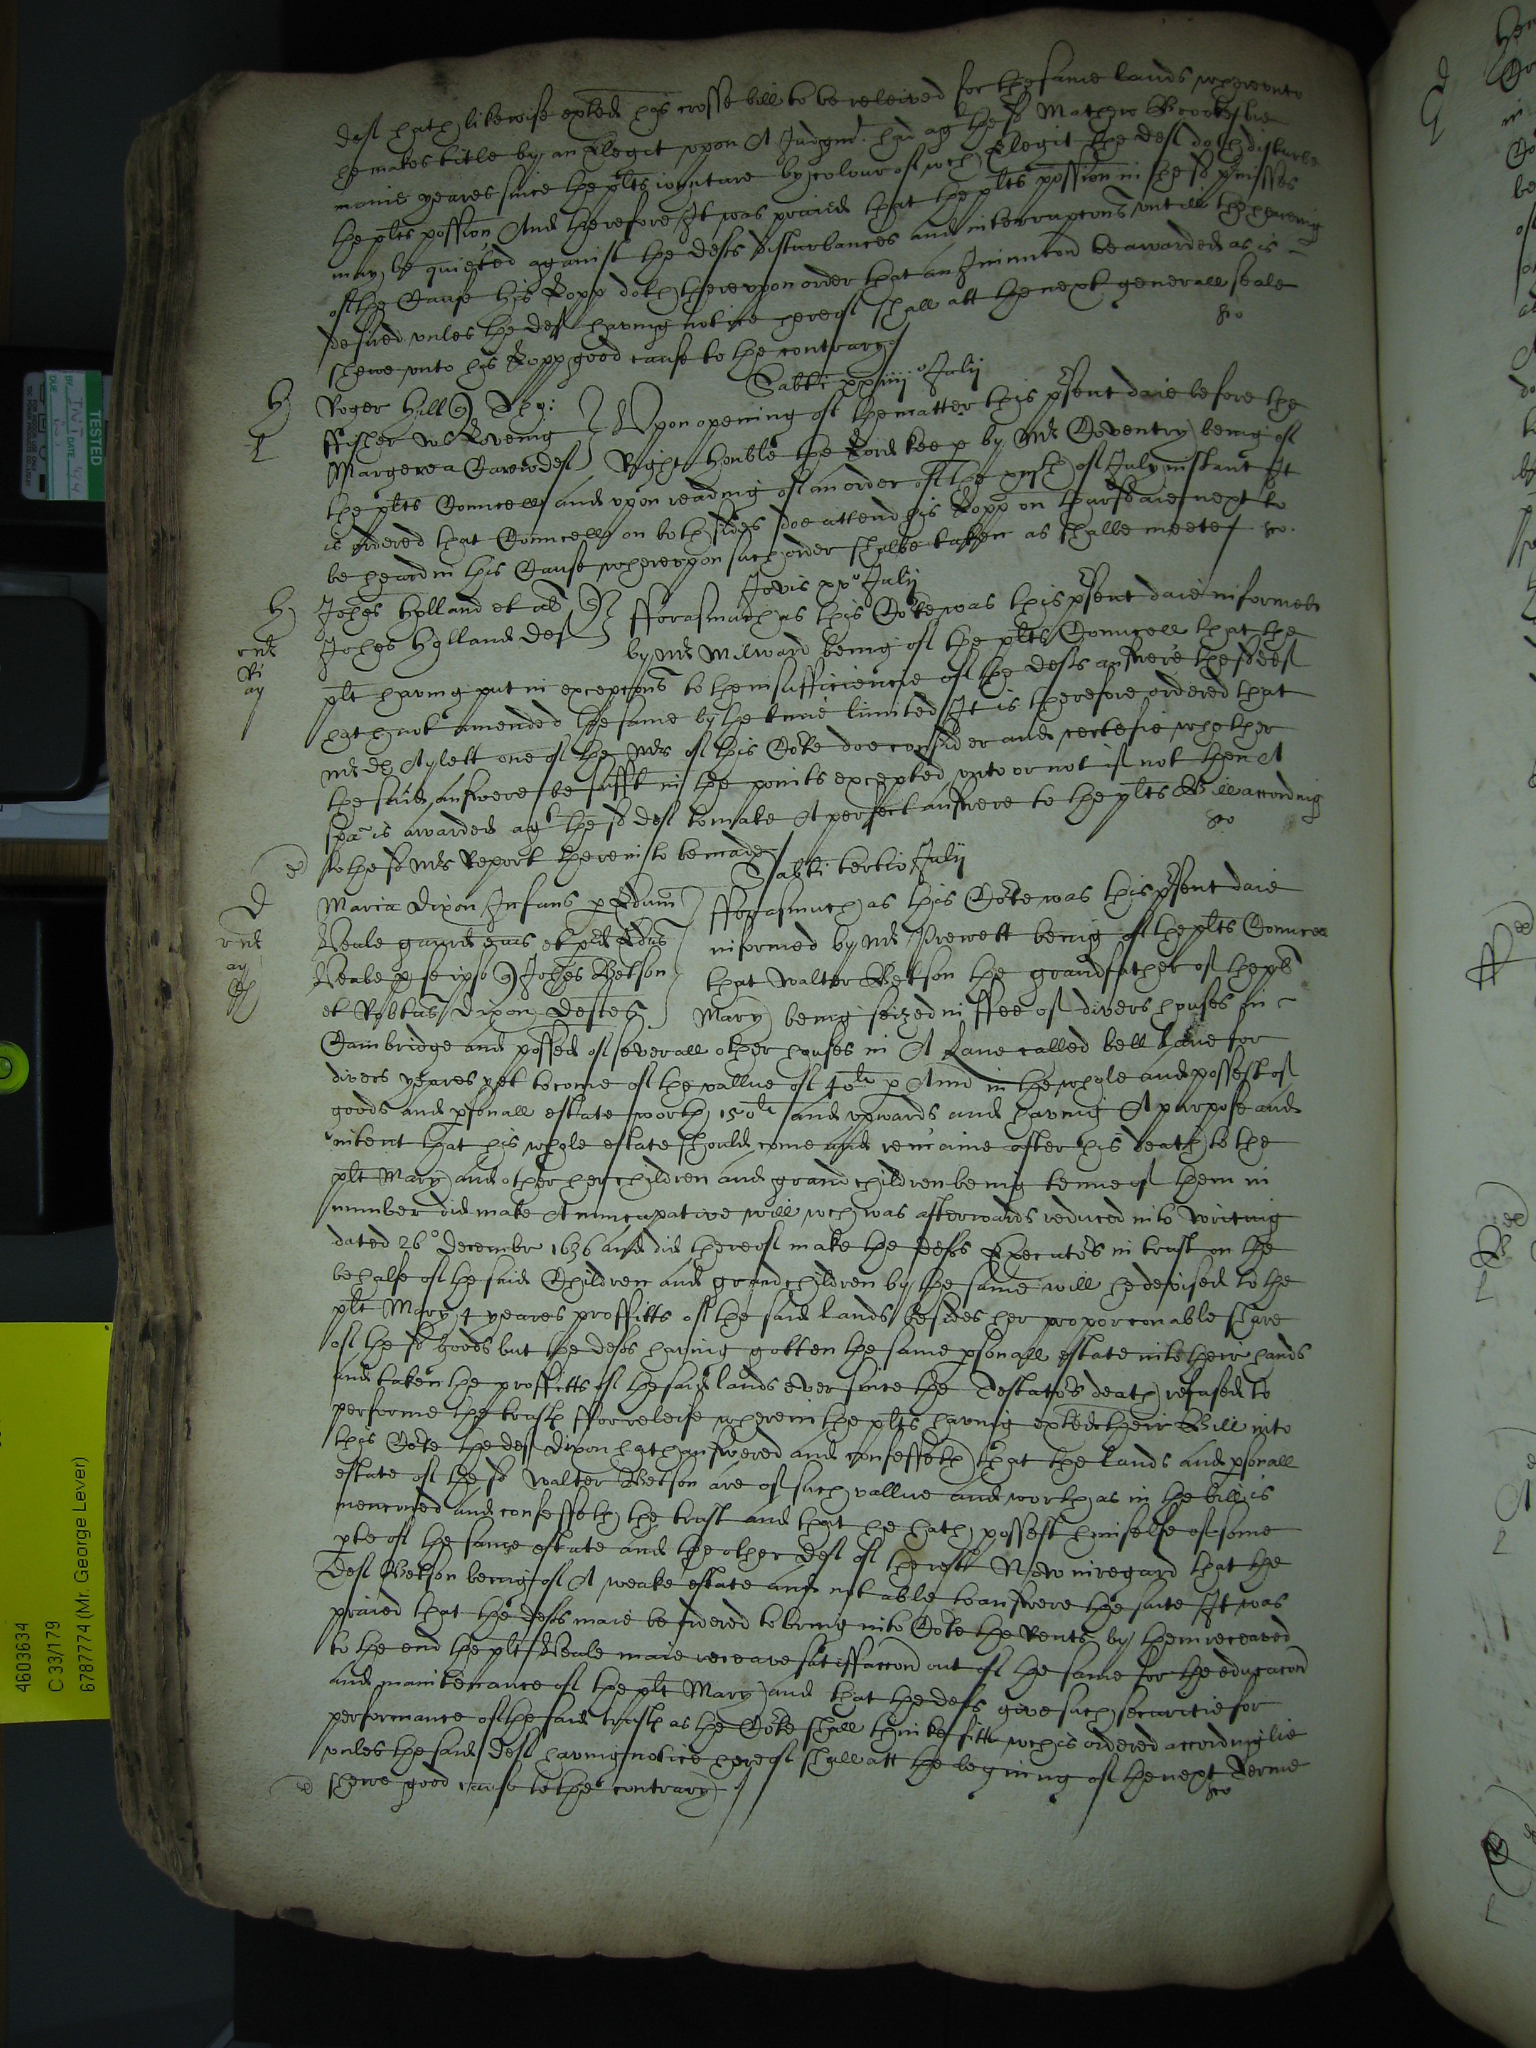 deft hath likewise exhted his crosse bill to be releived for the same lands whereunto
he makes title by an Elegit upon A Judgmt had agt the sd Mathew
manie yeares since the plts iointure by colour of wch Elegit the deft doth disturbe
the plts possion And therefore It was praied that the plts possion in the sd pmisses
may be quieted against the defts disturbances and interrupcons untill the hearing
of the Cause his Lopp doth thereupon order that an Iniuncon be awarded as is
desired unles the deft having notice hereof shall att the next generall seale
shewe unto his Lopp good cause to the contrary
Sabti xxiiij° Julij
Roger Hill
ffisher vid
Margerea deft
Upon opening of the matter this psent daie before the
Right Honble the Lord keep by Mr Coventry being of
the plts Councell and upon reading of an order of the of July instant It
is ordered that Councell on both sides doe attend his Lopp on thursdaie next to
be heard in this Cause whereupon such order shalbe taken as shalbe meete
Jovis xx° Julij
Johes Holland et al
Johes Hylland deft
fforasmuch as this Cote was this psent daie informed
by Mr Milward being of the plts Councell that the
plt having put in excepcons to the insufficiencie of the defts answere the sd deft
hath not amended the same by the time limited It is therefore ordered that
Mr dr Aylett one of the Mrs of this Cote doe consider and certefie whether
the said answere be sufft in the points excepted unto or not if not then A
spa is awarded agt the sd deft to make A perfect answere to the plts Bill according
to the sd Mrs Report therein to be made
Sabti tertio Julij
Maria Dixon Infans p Edum
Neale gard eius et pd Edus
Neale p se ipso Johes Betson
et Robtus Dixon Deftes
fforasmuch as this Cote was this psent daie
informed by Mr Prewett being of the plts Councell
that Walter Betson the grandfather of the plt
Mary being seized in ffee of divers houses in
Cambridge and possed of severall other houses in A Lane called bell Lane for
divers yeares yet to come of the vallue of 40li p Ann in the whole and possest of
goods and psonall estate worth 150li and upwards and having A purpose and
intent that his whole estate should come and remaine after his death to the
plt Mary and other her children and grandchildren being tenne of them in
number did make A nuncupative will wch was afterwards reduced into writing
dated 26° Decembr 1636 and did thereof make the defts Executors in trust on the
behalfe of the said Children and grandchildren by the same will he devised to the
plt Mary 4 yeares proffitts of the said lands besides her proporconable share
of the sd goods but the defts having gotten the same psonall estate into their hands
and taken the proffitts of the said lands ever since the Testators death refused to
performe the trust ffor releife wherein the plts having exhted their Bill into
this Cote the deft Dixon hath answered and confesseth that the lands and psonall
estate of the sd Walter Betson are of such vallue and worth as in the bill is
menconed and confesseth the trust and that he hath possest himselfe of some
pte of the same estate and the other deft of the rest Now in regard that the
deft Betson being of A weake estate and not able to answere the suite It was
praied that the defts maie be ordered to bring into Cote the Rents by them receaved
to the end the plt Neale maie receave satisfaccon out of the same for the educacon
and maintenance of the plt Mary and that the defts give such securitie for
performance of the said trust as the Cote shall thinke fitt wch is ordered accordinglie
unles the said deft having notice hereof shall att the begining of the next Terme
shewe good cause to the contrary
4603634
C 33/179
6787774 (Mr. George Lever)
TESTED